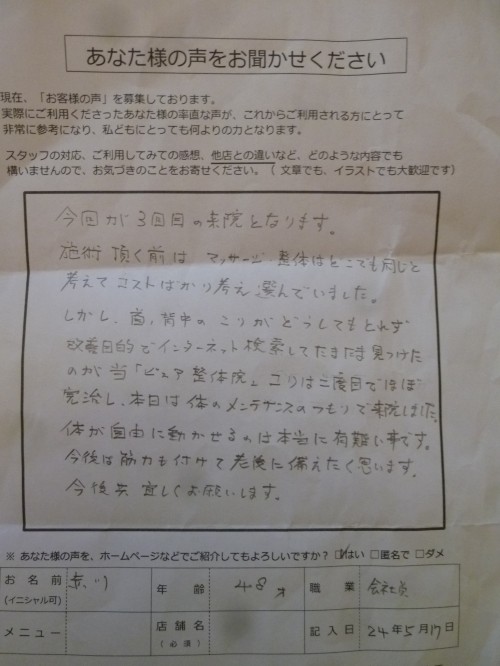 あなた様の声をお聞かせください
現在、「お客様の声」を募集しております。
実際にご利用くださったあなた様の率直な声が、これからご利用される方にとって
非常に参考になり、私どもにとっても何よりの力となります。
スタッフの対応、ご利用してみての感想、他店との違いなど、どのような内容でも
構いませんので、お気づきのことをお寄せください。(文章でも、イラストでも大歓迎です)
今回が3回目の来院となります。
施術頂く前は マッサージ、整体はどこでも同じと
考えてコストばかり考え選んでいました。
しかし、首、背中のこりがどうしてもとれず
改善目的でインターネット検索してたまたま見つけた
のが当「ピュア整体院」コリは二度目でほぼ
完治し、本日は体のメンテナンスのつもりで来院しました。
体が自由に動かせるのは本当に有難い事です。
今後は筋力も付けて老後に備えたく思います。
今後共宜しくお願いします。
※ あなた様の声を、ホームページなどでご紹介してもよろしいですか? ☑はい □匿名で □ダメ
お名前 (イニシャル可) 年齢 48才 職業 会社員
メニュー 店舗名 (必須) 記入日 24年5月17日